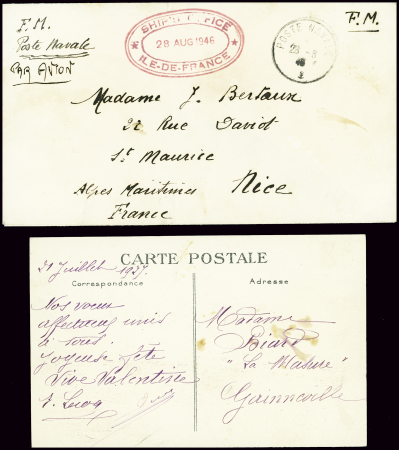 F.M.
Poste Navale
PAR AVION
SHIP'S OFFICE
28 AUG 1946
ILE-DE-FRANCE
POSTE NAVALE
F.M.
Madame J. Bertaux
22 Rue David
St Maurice
Alpes Maritimes Nice
France
CARTE POSTALE
21 Juillet 1937
Correspondance
Adresse
Nos voeux
affectueux unis
à tous.
Joyeuse fête
Vive Valentine
Madame
Biard
"La Masure"
Gainneville